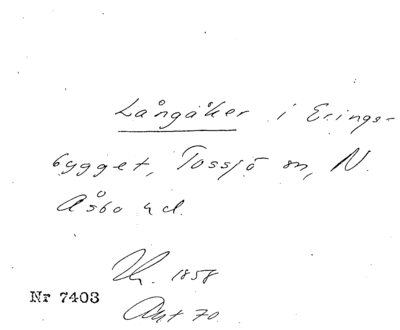 Långåker i Erings-
bygget, Tossjö sn, N.
Åsbo hd.
1858
Nr 7403
Akt 70